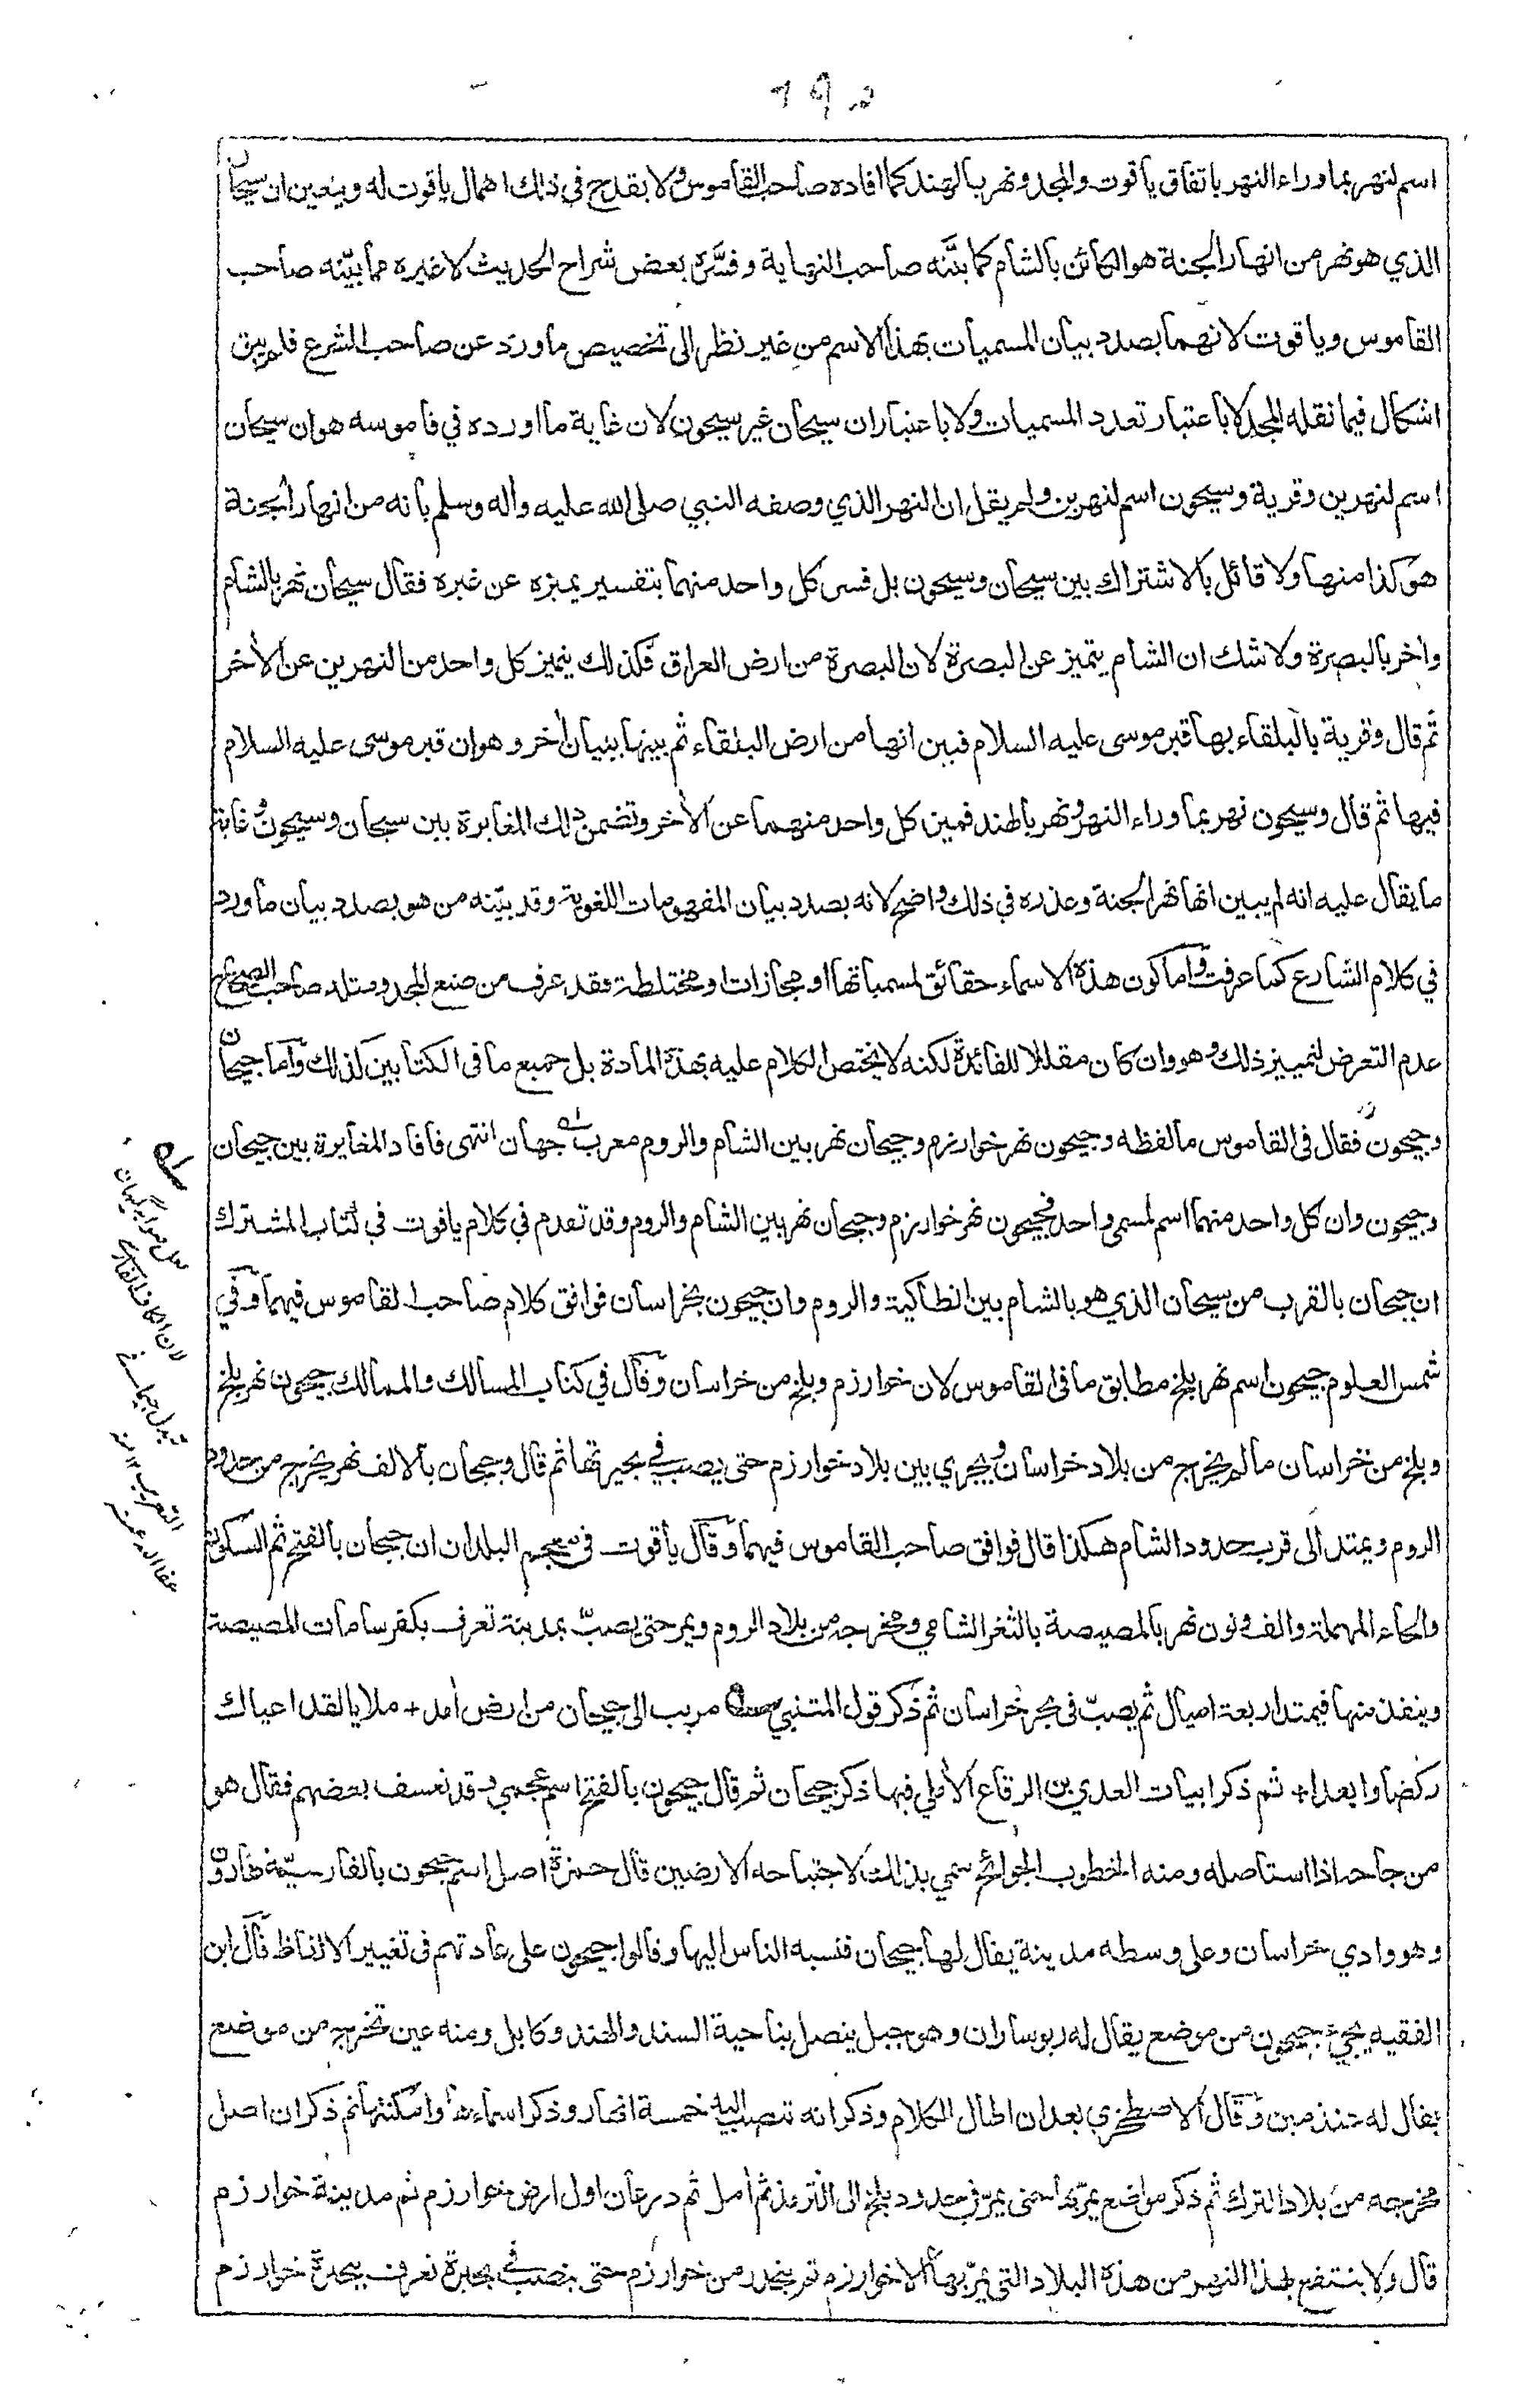 اسم لنهر بما وراء النهر باتفاق ياقوت والمجد ونهر بالهند كما افاده صاحب القاموس ولا يقدح في ذلك اهمال ياقوت له ويتعين ان سيحان
الذي هو نهر من انهار الجنة هو الكائن بالشام كما بيّنه صاحب النهاية وفسّره بعض شراح الحديث لا غيره مما بيّنه صاحب
القاموس وياقوت لانهما بصدد بيان المسميات بهذا الاسم من غير نظر الى تخصيص ما ورد عن صاحب الشرع فلم يبق
اشكال فيما نقله المجد لا باعتبار تعدد المسميات ولا باعتبار ان سيحان غير سيحون لان غاية ما اورده في قاموسه هو ان سيحان
اسم لنهرين وقرية وسيحون اسم لنهرين ولم يقل ان النهر الذي وصفه النبي صلى الله عليه واله وسلم بانه من انهار الجنة
هو كذا منها ولا قائل بالاشتراك بين سيحان وسيحون بل فسر كل واحد منهما بتفسير يميزه عن غيره فقال سيحان نهر بالشام
واخر بالبصرة ولا شك ان الشام يتميز عن البصرة لان البصرة من ارض العراق فكذلك يتميز كل واحد من النهرين عن الأخر
ثم قال وقرية بالبلقاء بها قبر موسى عليه السلام فبين انها من ارض البلقاء ثم بينها ببيان أخر وهو ان قبر موسى عليه السلام
فيها ثم قال وسيحون نهر بما وراء النهر ونهر بالهند فميز كل واحد منهما عن الأخر وتضمن ذلك المغايرة بين سيحان وسيحون وغاية
ما يقال عليه انه لم يبين انها نهر الجنة وعذره في ذلك واضح لانه بصدد بيان المفهومات اللغوية وقد بيّنه من هو بصدد بيان ما ورد
في كلام الشارع كما عرفت واما كون هذه الاسماء حقائق لمسمياتها او مجازات او مختلطة فقد عرف من صنع المجد ومثله صاحب الصحاح
عدم التعرض لتمييز ذلك وهو وان كان مقللا للفائدة لكنه لا يختص الكلام عليه بهذه المادة بل جميع ما في الكتابين كذلك واما جيحان
وجيحون فقال في القاموس ما لفظه وجيحون نهر خوارزم وجيحان نهر بين الشام والروم معرب جهان انتهى فافاد المغايرة بين جيحان
وجيحون وان كل واحد منهما اسم لمسمى واحد فجيحون نهر خوارزم وجيحان نهر بين الشام والروم وقد تقدم في كلام ياقوت في كتاب المشترك
ان جيحان بالقرب من سيحان الذي هو بالشام بين انطاكية والروم وان جيحون بخراسان فوافق كلام صاحب القاموس فيهما وفي
شمس العلوم جيحون اسم نهر بلخ مطابق ما في القاموس لان خوارزم وبلخ من خراسان وقال في كتاب المسالك والممالك جيحون نهر بلخ
وبلخ من خراسان ما لم يخرج من بلاد خراسان ويجري بين بلاد خوارزم حتى يصب في بحيرتها ثم قال وجيحان بالالف نهر يخرج من حدود
الروم ويمتد الى قرب حدود الشام هكذا قال فوافق صاحب القاموس فيهما وقال ياقوت في معجم البلدان ان جيحان بالفتح ثم السكون
والحاء المهملة والف ونون نهر بالمصيصة بالثغر الشامي ومخرجه من بلاد الروم ويمر حتى يصبّ بمدينة تعرف بكفرسامات المصيصة
وينفذ منها فيمتد اربعة اميال ثم يصبّ في بحر خراسان ثم ذكر قول المتنبي مريب الى جيحان من ارض أمد + ملايا لقد اعياك
ركضا وابعدا + ثم ذكر ابيات العدي بن الرقاع الأملي فيها ذكر جيحان ثم قال جيحون بالفتح اسم عجمي وقد تعسف بعضهم فقال هو
من جاحه اذا استاصله ومنه الخطوب الجوائح سمي بذلك لاجتياحه الارضين قال حمزة اصل اسم جيحون بالفارسيّة هارون
وهو وادي خراسان وعلى وسطه مدينة يقال لها جيحان فنسبه الناس اليها وقالوا جيحون على عادتهم في تغيير الالفاظ قال ابن
الفقيه يجيء جيحون من موضع يقال له ربوساران وهو جبل يتصل بناحية السند والهند وكابل ومنه عين تخرج من موضع
يقال له عندمين وقال الاصطخري بعد ان اطال الكلام وذكر انه تنصب اليه خمسة انهار وذكر اسماءها وامكنتها ثم ذكر ان اصل
مخرجه من بلاد الترك ثم ذكر مواضع يمر بها حتى يمرّ في حدود بلخ الى الترمذ ثم أمل ثم درعان اول ارض خوارزم ثم مدينة خوارزم
قال ولا ينتفع بهذا النهر من هذه البلاد التي يمرّ بها الا خوارزم ثم ينحدر من خوارزم حتى ينصب في بحيرة تعرف ببحيرة خوارزم
لان الكاف الفارسي
تبدل جيما في
التعريب ١٢ منه
عفا الله عنه